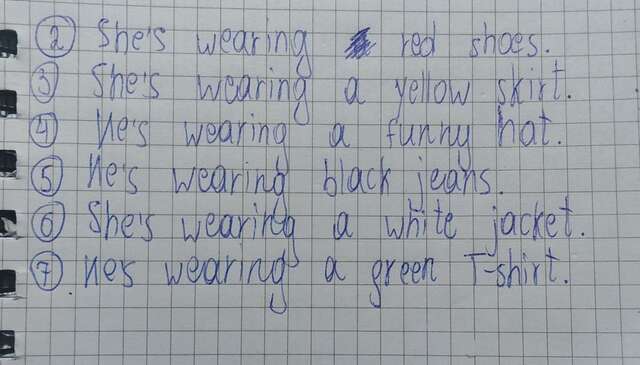 ② She's wearing red shoes.
③ She's wearing a yellow skirt.
④ He's wearing a funny hat.
⑤ He's wearing black jeans.
⑥ She's wearing a white jacket.
⑦ He's wearing a green T-shirt.